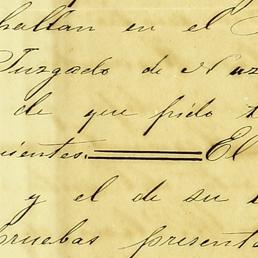 hallan en el
Juzgado de
de que pido
mientes. El
y el de su
pruebas presenta